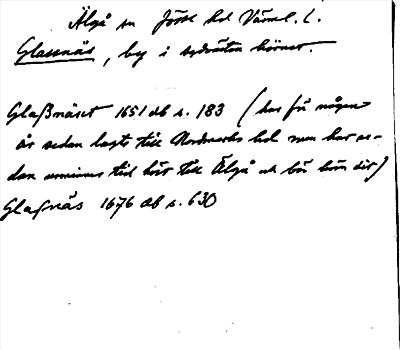 Älgå sn Jösse hd Värml. l.
Glassnäs, by i sydvästra hörnet.
Glaßnäset 1651 db s. 183 (har för någon
år sedan lagts till Nordmarks hd men har se-
dan urminnes tid hört till Älgå och bör höra dit)
Glasnäs 1676 db s. 630